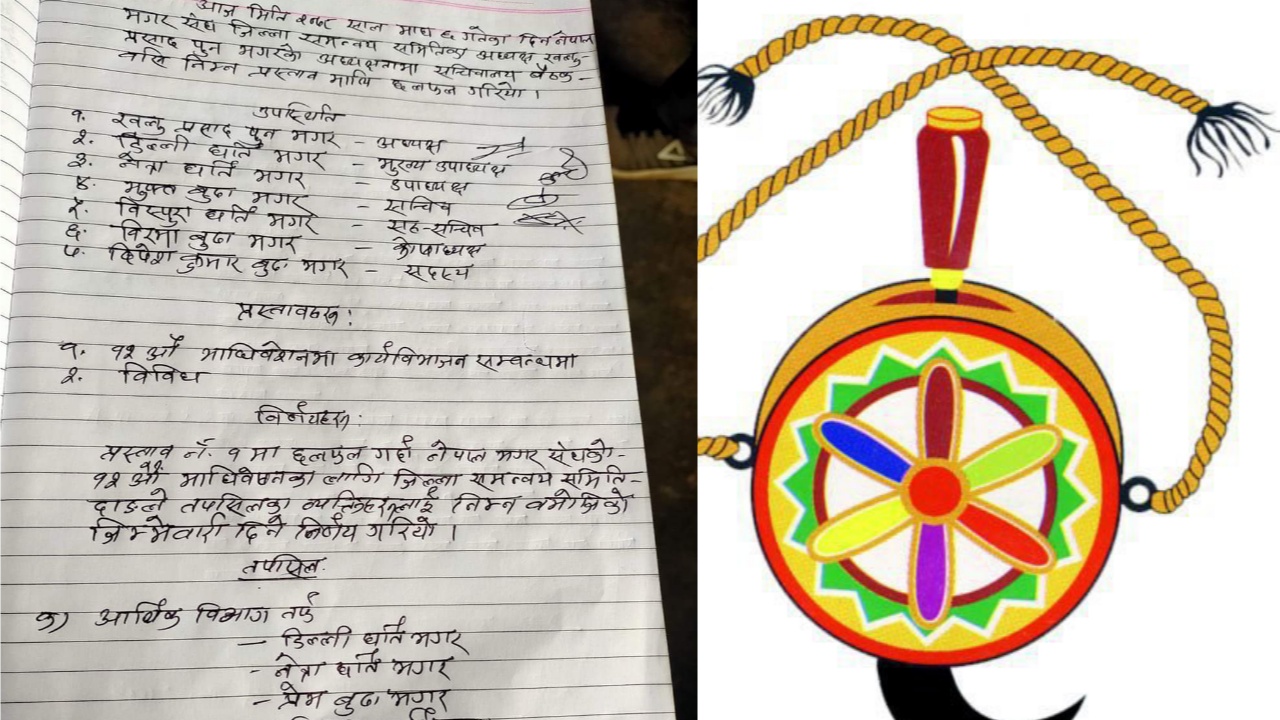 आज मिति २०७८ साल माघ ६ गतेका दिन नेपाल
मगर संघ जिल्ला समन्वय समितिका अध्यक्ष
प्रसाद पुन मगरको अध्यक्षतामा सचिवालय बैठक
बसि निम्न प्रस्ताव माथि छलफल गरियो ।
उपस्थिति
१. प्रसाद पुन मगर - अध्यक्ष
२. डिल्ली घर्ति मगर - मुख्य उपाध्यक्ष
३. नेत्रा घर्ति मगर - उपाध्यक्ष
४. मुक्त बुढा मगर - सचिव
५. घर्ति मगर - सह-सचिव
६. विरमा बुढा मगर - कोषाध्यक्ष
७. कुमार बुढा मगर - सदस्य
प्रस्तावहरू :
१. १२ औं माधिवेशनमा कार्यविभाजन सम्बन्धमा
२. विविध
निर्णयहरू :
प्रस्ताव नं. १ मा छलफल गर्दा नेपाल मगर संघको-
१२ औं माधिवेशनका लागि जिल्ला समन्वय समिति-
दाङले तपसिलका व्यक्तिहरूलाई निम्न बमोजिमको
जिम्मेवारी दिने निर्णय गरियो ।
तपसिल
क) आर्थिक विभाग तर्फ
- डिल्ली घर्ति मगर
- नेत्रा घर्ति मगर
- प्रेम बुढा मगर